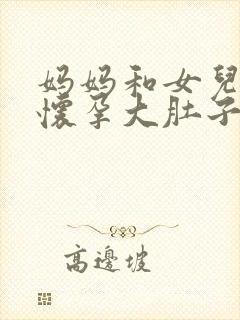 妈妈和女兒
懷孕大肚子
高邊坡